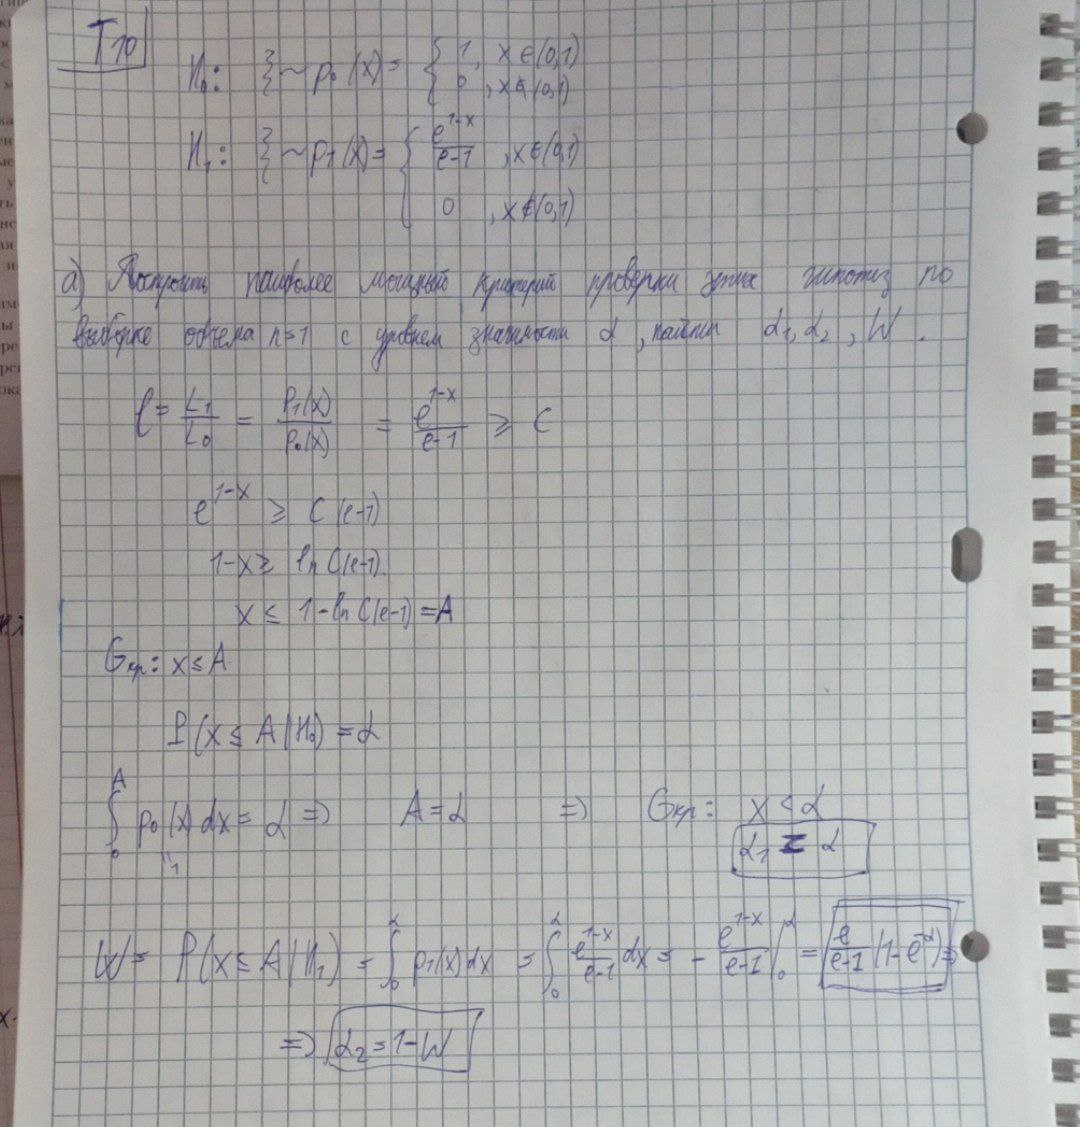 T10
H₀: ξ ~ p₀(x) = { 1, x ∈ (0,1)
0, x ∉ (0,1)
H₁: ξ ~ p₁(x) = { e^{1-x}/(e-1), x ∈ (0,1)
0, x ∉ (0,1)
а) Построить наиболее мощный критерий проверки этих гипотез по
выборке объема n=1 с уровнем значимости α, найти α₁, α₂, W.
l = L₁/L₀ = p₁(x)/p₀(x) = e^{1-x}/(e-1) ⩾ C
e^{1-x} ⩾ C(e-1)
1-x ⩾ ln C(e-1)
x ≤ 1-ln C(e-1) = A
Gкр: x ≤ A
P(x ≤ A | H₀) = α
∫₀^A p₀(x) dx = α ⇒ A = α ⇒ Gкр: x < α
"1
α₁ = α
W = P(x ≤ A | H₁) = ∫₀^α p₁(x) dx = ∫₀^α e^{1-x}/(e-1) dx = - e^{1-x}/(e-1) |₀^α = e/(e-1) (1-e^{-α}) ⇒
⇒ α₂ = 1-W